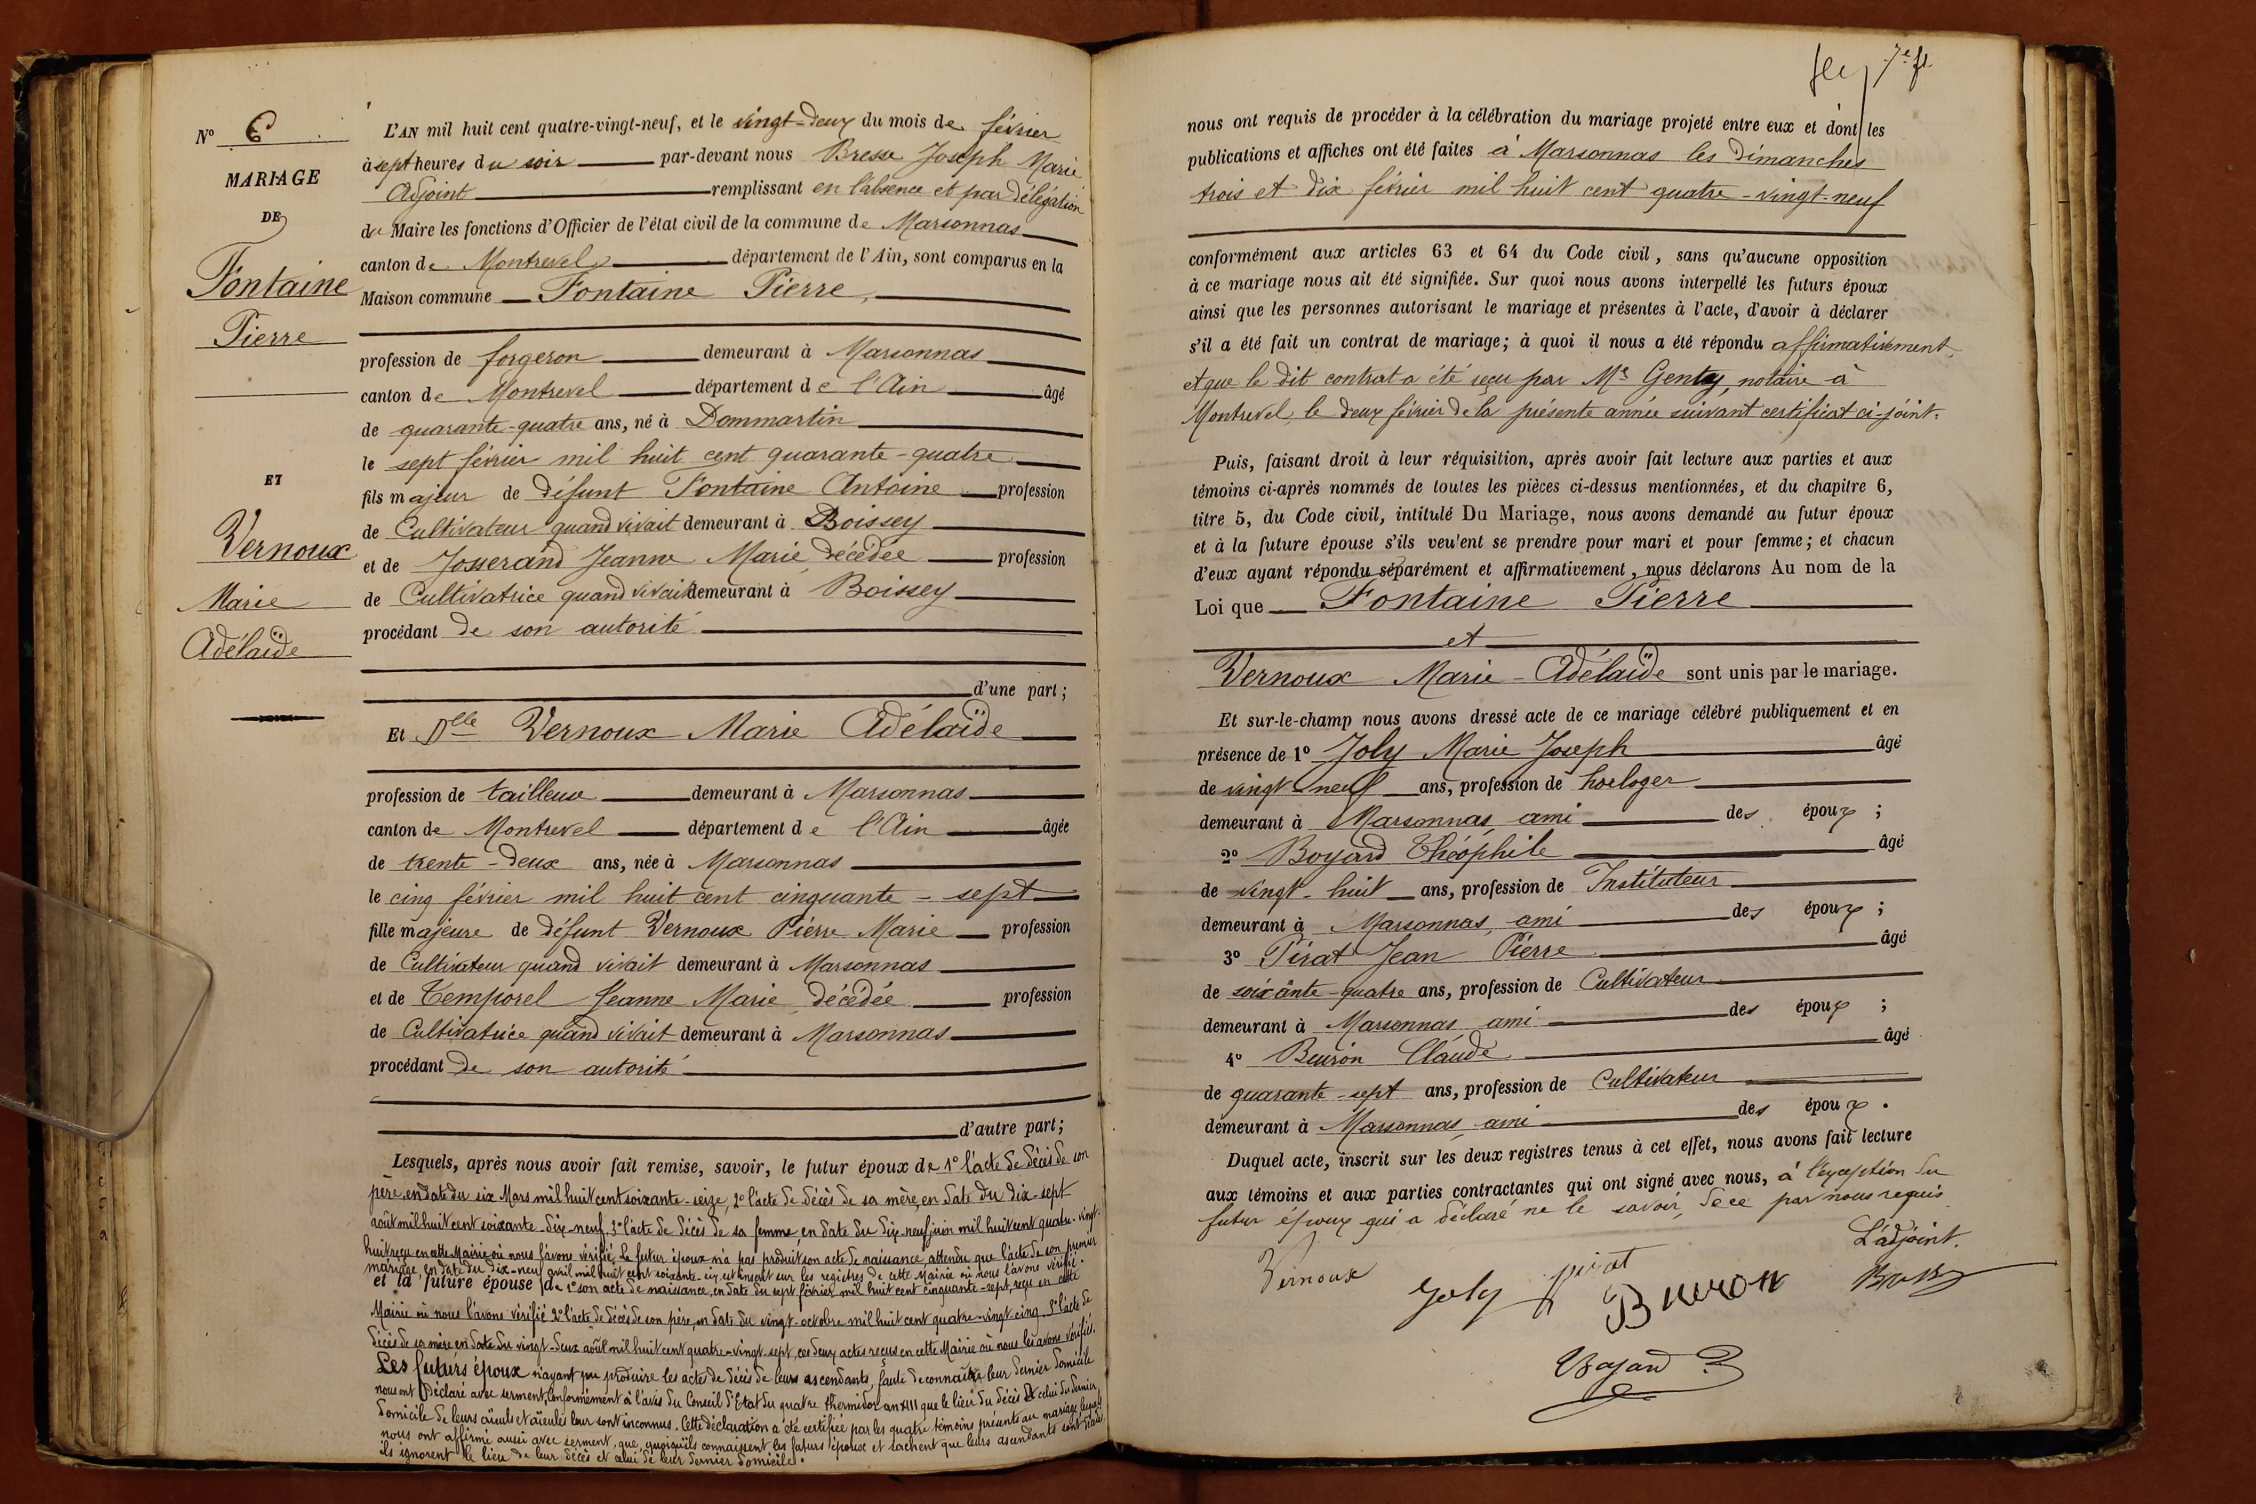 N° 6
MARIAGE
DE
Fontaine
Pierre
ET
Vernoux
Marie
Adélaïde
L'AN mil huit cent quatre-vingt-neuf, et le vingt-deux du mois de février
à sept heures du soir par-devant nous Bresse Joseph Marie
Adjoint remplissant en l'absence et par délégation
du Maire les fonctions d'Officier de l'état civil de la commune de Marsonnas
canton de Montrevel département de l'Ain, sont comparus en la
Maison commune Fontaine Pierre,
profession de forgeron demeurant à Marsonnas
canton de Montrevel département de l'Ain âgé
de quarante-quatre ans, né à Dommartin
le sept février mil huit cent quarante-quatre
fils majeur de défunt Fontaine Antoine profession
de Cultivateur quand vivait demeurant à Boissey
et de Josserand Jeanne Marie, décédée profession
de Cultivatrice quand vivait demeurant à Boissey
procédant de son autorité
d'une part;
Et Dlle Vernoux Marie Adélaïde
profession de tailleuse demeurant à Marsonnas
canton de Montrevel département de l'Ain âgée
de trente-deux ans, née à Marsonnas
le cinq février mil huit cent cinquante-sept
fille majeure de défunt Vernoux Pierre Marie profession
de Cultivateur quand vivait demeurant à Marsonnas
et de Temporel Jeanne Marie, décédée profession
de Cultivatrice quand vivait demeurant à Marsonnas
procédant de son autorité
d'autre part;
Lesquels, après nous avoir fait remise, savoir, le futur époux de 1° l'acte de décès de son
père, en date du six Mars mil huit cent soixante-seize, 2° l'acte de décès de sa mère, en date du dix-sept
août mil huit cent soixante-dix-neuf, 3° l'acte de décès de sa femme, en date du dix-neuf juin mil huit cent quatre-vingt-
huit reçu en cette Mairie où nous l'avons vérifié. Le futur époux n'a pas produit son acte de naissance, attendu que l'acte de son premier
mariage, en date du dix-neuf avril mil huit cent soixante-dix, est inscrit sur les registres de cette Mairie où nous l'avons vérifié.
et la future épouse de 1° son acte de naissance, en date du sept février mil huit cent cinquante-sept, reçu en cette
Mairie où nous l'avons vérifié 2° l'acte de décès de son père, en date du vingt octobre mil huit cent quatre-vingt-cinq 3° l'acte de
décès de sa mère en date du vingt-deux août mil huit cent quatre-vingt-sept, ces deux actes reçus en cette Mairie où nous les avons vérifiés.
Les futurs époux n'ayant pu produire les actes de décès de leurs ascendants, faute de connaître leur dernier domicile
nous ont déclaré avec serment, conformément à l'avis du Conseil d'Etat du quatre thermidor an XIII que le lieu du décès et celui du dernier
domicile de leurs aïeuls et aïeules leur sont inconnus. Cette déclaration a été certifiée par les quatre témoins présents au mariage, lesquels
nous ont affirmé aussi avec serment, que, quoiqu'ils connaissent les futurs époux et sachent que leurs ascendants sont
ils ignorent le lieu de leur décès et celui de leur dernier domicile.
7e ft
nous ont requis de procéder à la célébration du mariage projeté entre eux et dont les
publications et affiches ont été faites à Marsonnas les dimanches
trois et dix février mil huit cent quatre-vingt-neuf
conformément aux articles 63 et 64 du Code civil, sans qu'aucune opposition
à ce mariage nous ait été signifiée. Sur quoi nous avons interpellé les futurs époux
ainsi que les personnes autorisant le mariage et présentes à l'acte, d'avoir à déclarer
s'il a été fait un contrat de mariage; à quoi il nous a été répondu affirmativement,
et que le dit contrat a été reçu par Me Genty, notaire à
Montrevel, le deux février de la présente année suivant certificat ci-joint.
Puis, faisant droit à leur réquisition, après avoir fait lecture aux parties et aux
témoins ci-après nommés de toutes les pièces ci-dessus mentionnées, et du chapitre 6,
titre 5, du Code civil, intitulé Du Mariage, nous avons demandé au futur époux
et à la future épouse s'ils veulent se prendre pour mari et pour femme; et chacun
d'eux ayant répondu séparément et affirmativement, nous déclarons Au nom de la
Loi que Fontaine Pierre
et
Vernoux Marie-Adélaïde sont unis par le mariage.
Et sur-le-champ nous avons dressé acte de ce mariage célébré publiquement et en
présence de 1° Joly Marie Joseph âgé
de vingt-neuf ans, profession de horloger
demeurant à Marsonnas, ami des époux;
2° Boyard Théophile âgé
de vingt-huit ans, profession de Instituteur
demeurant à Marsonnas, ami des époux;
3° Pirat Jean Pierre âgé
de soixante-quatre ans, profession de Cultivateur
demeurant à Marsonnas, ami des époux;
4° Beuron Claude âgé
de quarante-sept ans, profession de Cultivateur
demeurant à Marsonnas, ami des époux.
Duquel acte, inscrit sur les deux registres tenus à cet effet, nous avons fait lecture
aux témoins et aux parties contractantes qui ont signé avec nous, à l'exception du
futur époux qui a déclaré ne le savoir, de ce par nous requis
L'adjoint.
Vernoux Joly pirat Beuron Bresse
Boyard